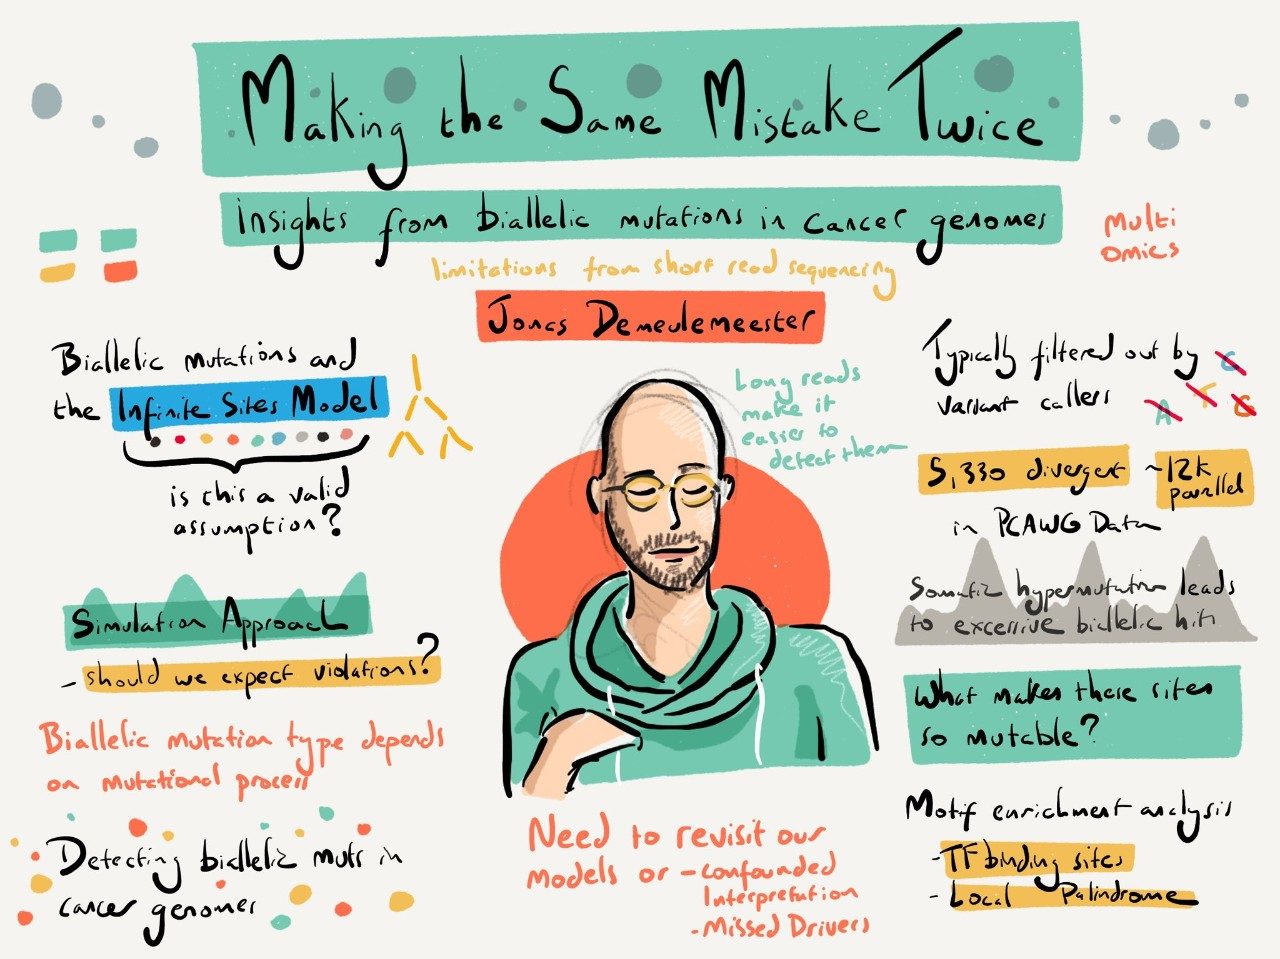 Making the Same Mistake Twice
insights from biallelic mutations in cancer genomes
limitations from short read sequencing
multi
omics
Jonas Demeulemeester
Biallelic mutations and
the Infinite Sites Model
is this a valid
assumption?
Simulation Approach
- should we expect violations?
Biallelic mutation type depends
on mutational process
Detecting biallelic muts in
cancer genomes
Long reads
make it
easier to
detect them
Need to revisit our
models or - confounded
Interpretation
- Missed Drivers
Typically filtered out by
variant callers
A T C G
5,330 divergent ~12k
parallel
in PCAWG Data
Somatic hypermutation leads
to excessive biallelic hits
What makes these sites
so mutable?
Motif enrichment analysis
- TF binding sites
- Local Palindrome